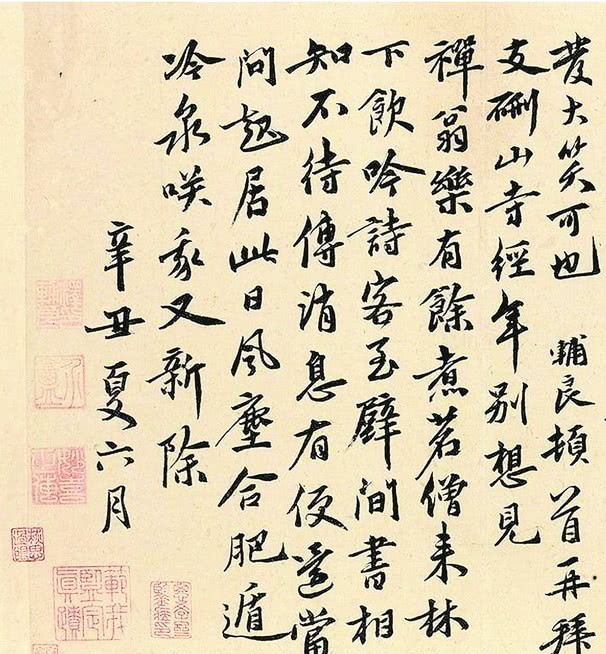 發大笑可也 輔良頓首再拜
支硎山寺經年別想見
禪翁樂有餘煮茗僧来林
下飲吟詩客至壁間書相
知不待傳消息有便還當
問起居此日風塵合肥遁
冷泉咲我又新除
辛丑夏六月